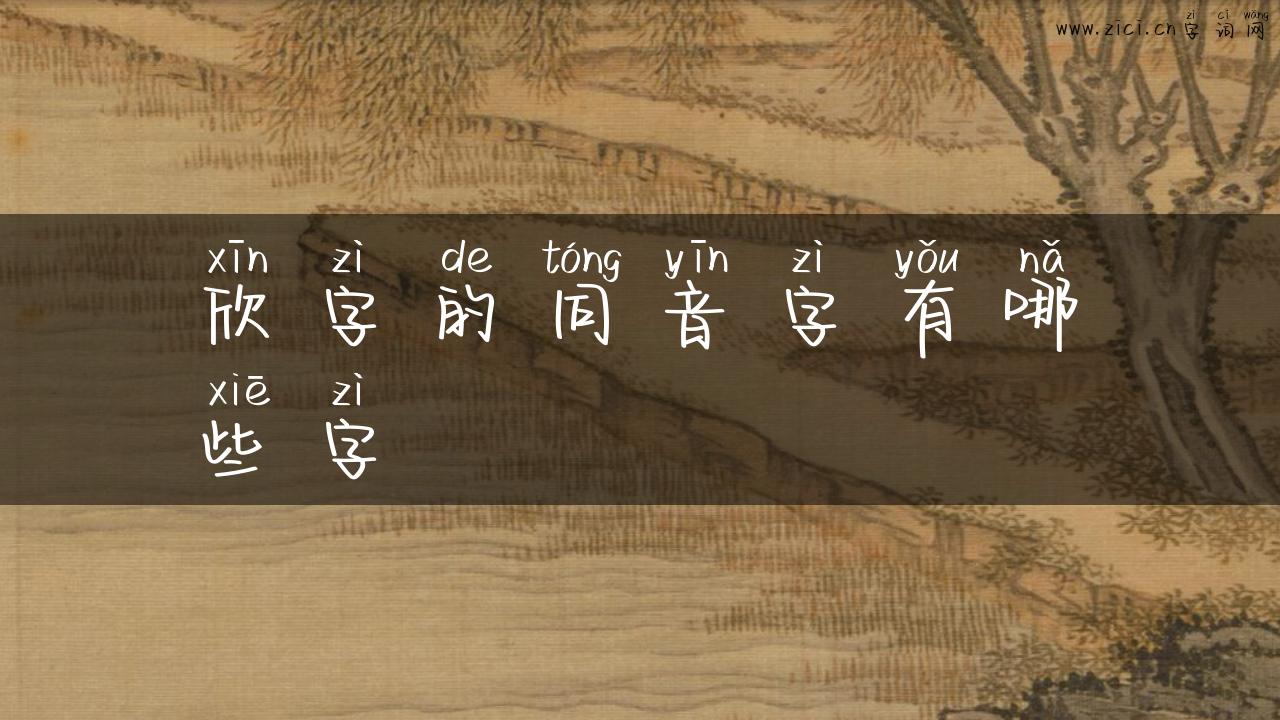 zì cí wǎng
www.zici.cn字词网
xīn zì de tóng yīn zì yǒu nǎ
欣字的同音字有哪
xiē zì
些字